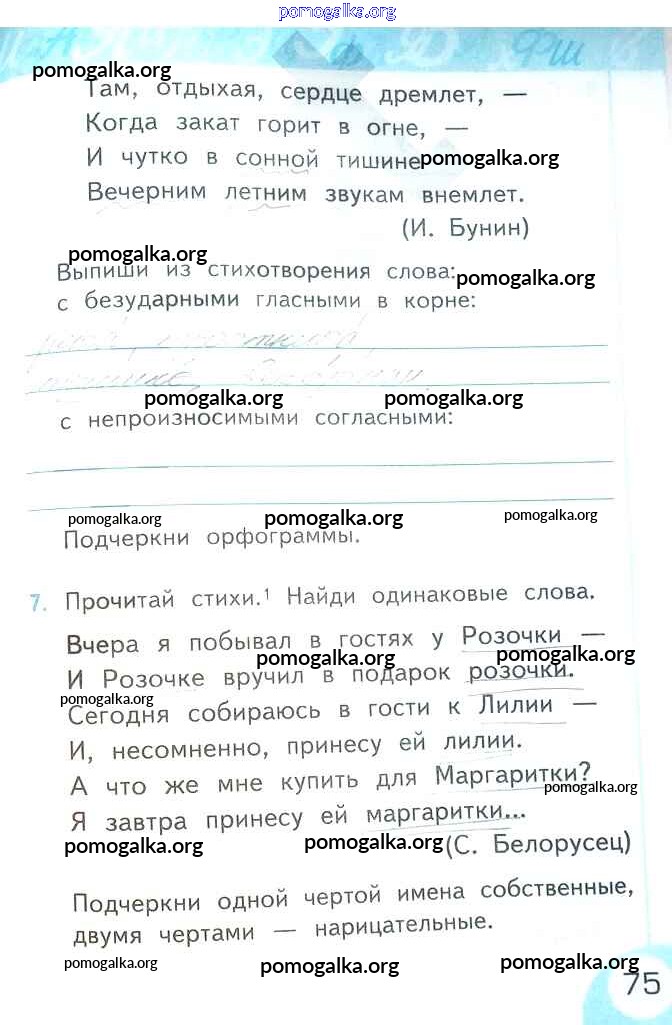 pomogalka.org
pomogalka.org
Там, отдыхая, сердце дремлет, —
Когда закат горит в огне, —
И чутко в сонной тишине
pomogalka.org
Вечерним летним звукам внемлет.
(И. Бунин)
pomogalka.org
Выпиши из стихотворения слова:
pomogalka.org
с безударными гласными в корне:
pomogalka.org pomogalka.org
с непроизносимыми согласными:
pomogalka.org pomogalka.org pomogalka.org
Подчеркни орфограммы.
7. Прочитай стихи.¹ Найди одинаковые слова.
Вчера я побывал в гостях у Розочки —
pomogalka.org pomogalka.org
И Розочке вручил в подарок розочки.
pomogalka.org
Сегодня собираюсь в гости к Лилии —
И, несомненно, принесу ей лилии.
А что же мне купить для Маргаритки?
pomogalka.org
Я завтра принесу ей маргаритки...
pomogalka.org pomogalka.org
(С. Белорусец)
Подчеркни одной чертой имена собственные,
двумя чертами — нарицательные.
pomogalka.org pomogalka.org pomogalka.org
75